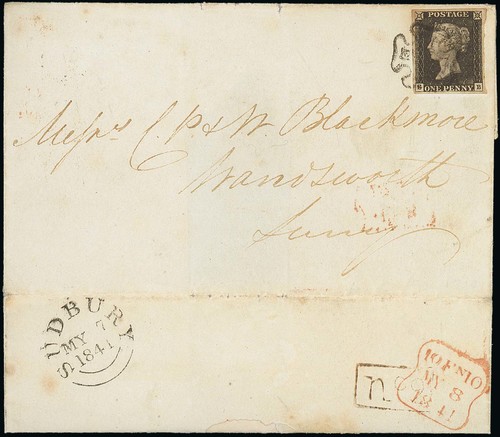 POSTAGE
ONE PENNY
Messrs C. P. & W. Blackmore
Wandsworth
Surrey
SUDBURY
MY 7
1841
10 FN 10
MY 8
1841